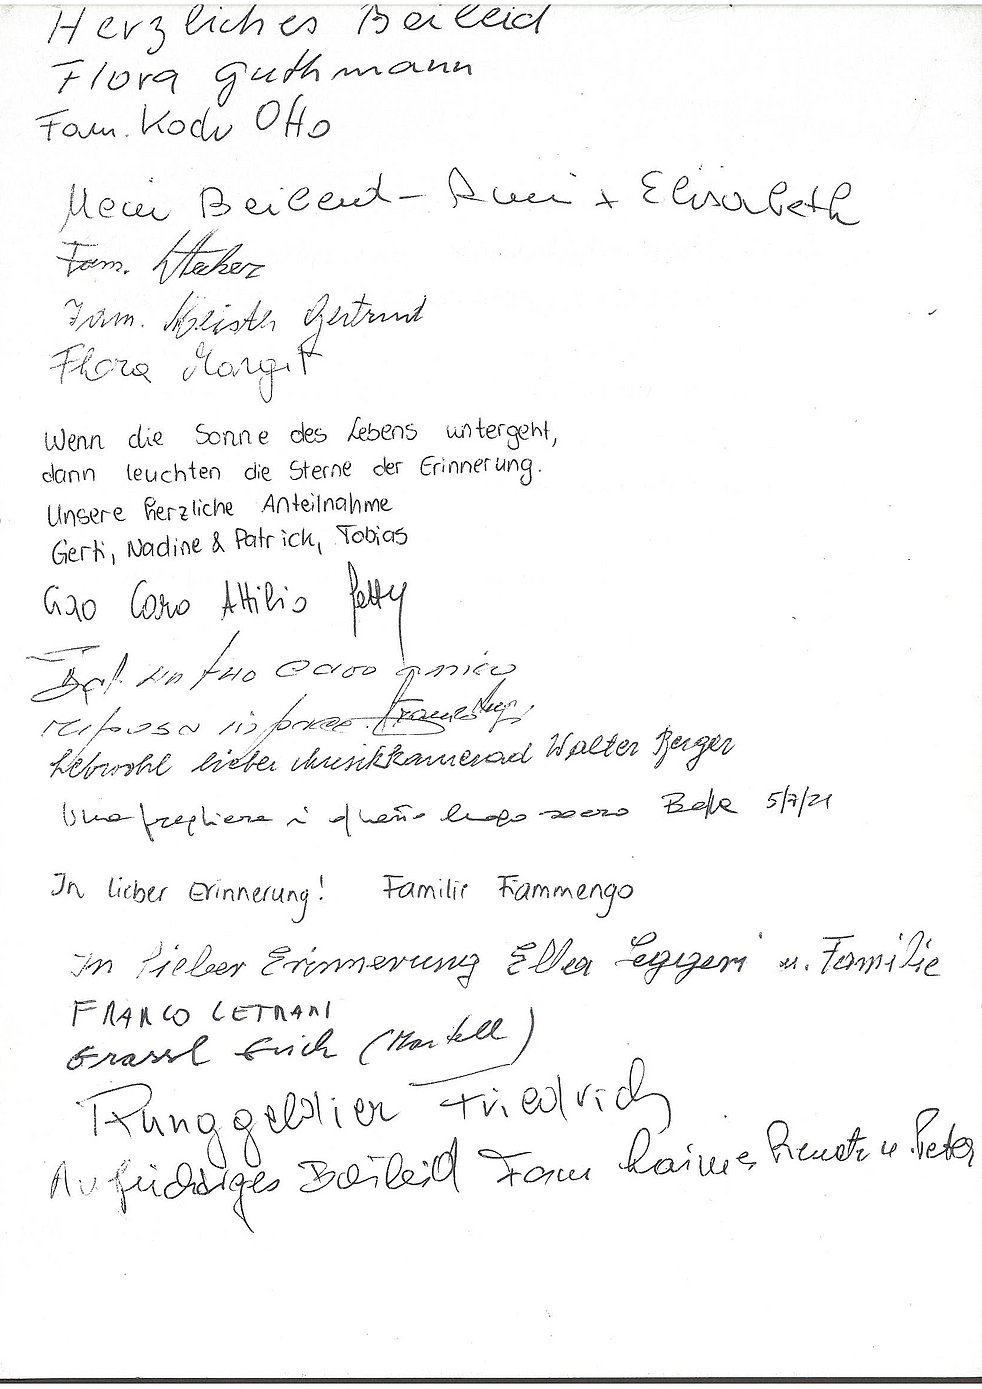 Herzliches Beileid
Flora Guthmann
Fam. Koch Otto
Mein Beileid - + Elisabeth
Fam.
Fam. Meister Gertrud
Flora Margit
Wenn die Sonne des Lebens untergeht,
dann leuchten die Sterne der Erinnerung.
Unsere herzliche Anteilnahme
Gerti, Nadine & Patrick, Tobias
Ciao Caro Attilio
un tuo caro amico
riposa in pace
Lebwohl lieber Musikkamerad Walter Berger
Una preghiera luogo sacro 5/7/21
In lieber Erinnerung! Familie Fiammengo
In lieber Erinnerung Elka u. Familie
FRANCO LETRARI
Grassl Erich (Martell)
Runggaldier Friedrich
Aufrichtiges Beileid Fam Renate u Peter